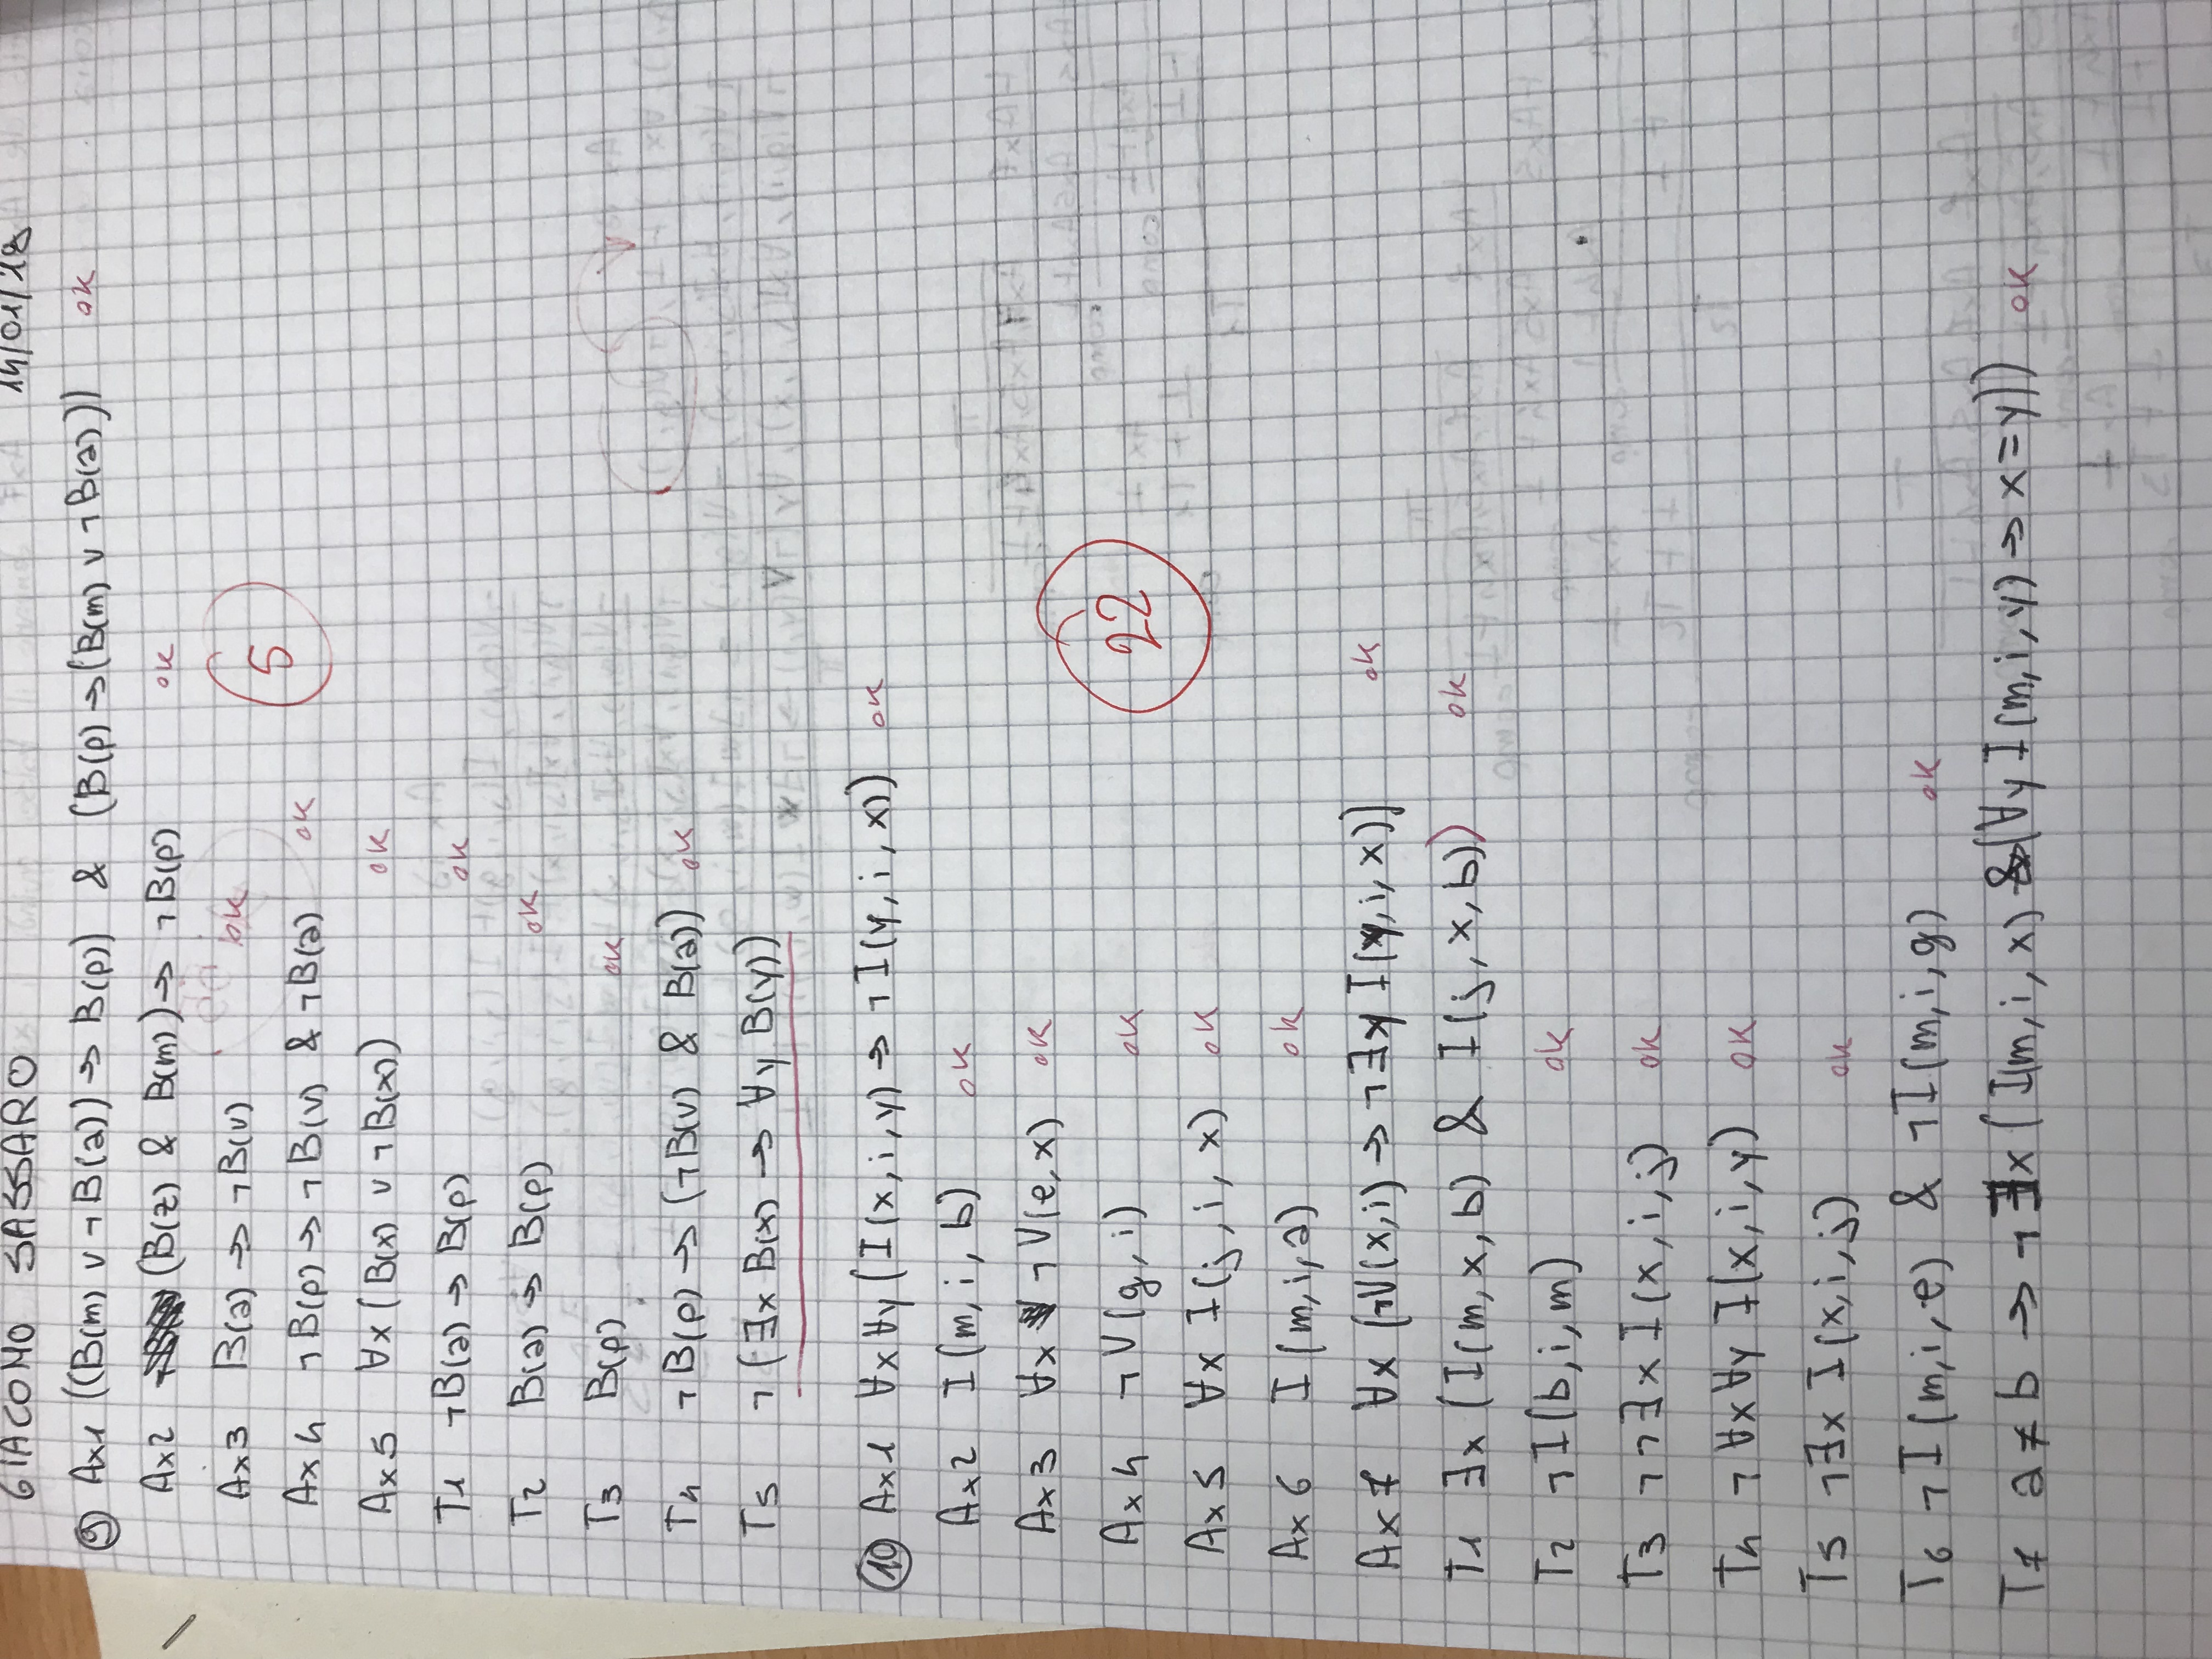 GIACOMO SASSARO 14/01/18
⑨ Ax1 ((B(m) ∨ ¬B(a)) → B(p)) & (B(p) → (B(m) ∨ ¬B(a))) ok
Ax2 (B(z) & B(m)) → ¬B(p) ok
Ax3 B(a) → ¬B(v) ok
5
Ax4 ¬B(p) → ¬B(v) & ¬B(a) ok
Ax5 ∀x (B(x) ∨ ¬B(x)) ok
T1 ¬B(a) → B(p) ok
T2 B(a) → B(p) ok
T3 B(p) ok
T4 ¬B(p) → (¬B(v) & B(a)) ok
T5 ¬(∃x B(x) → ∀y B(y))
⑩ Ax1 ∀x∀y (I(x,i,y) → ¬I(y,i,x)) ok
Ax2 I(m,i,b) ok
Ax3 ∀x ¬V(e,x) ok
Ax4 ¬V(g,i) ok
22
Ax5 ∀x I(j,i,x) ok
Ax6 I(m,i,a) ok
Ax7 ∀x (¬V(x,i) → ¬∃y I(y,i,x)) ok
T1 ∃x (I(m,x,b) & I(j,x,b)) ok
T2 ¬I(b,i,m) ok
T3 ¬¬∃x I(x,i,j) ok
T4 ¬∀x∀y I(x,i,y) ok
T5 ¬∃x I(x,i,j) ok
T6 ¬I(m,i,e) & ¬I(m,i,g) ok
T7 a≠b → ¬∃x (I(m,i,x) & (∀y I(m,i,y) → x=y)) ok